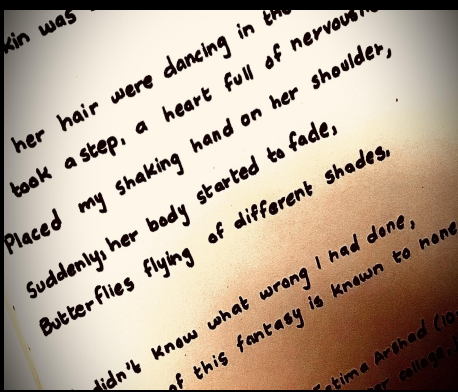 kin was
her hair were dancing in the
took a step, a heart full of nervous
Placed my shaking hand on her shoulder,
Suddenly, her body started to fade,
Butterflies flying of different shades.
didn't know what wrong I had done,
of this fantasy is known to none
Fatima Arshad (10
er college